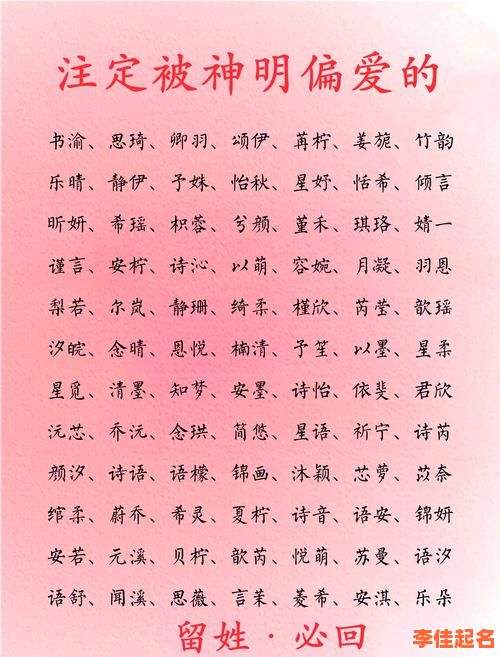 注定被神明偏爱的
书渝、思琦、卿羽、颂伊、苒柠、姜旎、竹韵
乐晴、静伊、予姝、怡秋、星妤、恬希、倾言
昕妍、希瑶、枳蓉、兮颜、堇禾、琪珞、婧一
谨言、安柠、诗沁、以萌、容婉、月凝、羽恩
梨若、尔岚、静珊、绮柔、槿欣、芮莹、歆瑶
汐皖、念晴、恩悦、楠清、予笙、以墨、星柔
星觅、清墨、知梦、安墨、诗怡、依斐、君欣
沅芯、乔沅、念珙、简悠、星语、祈宁、诗芮
颜汐、诗语、语檬、锦画、沐颖、芯萝、苡奈
绾柔、蔚乔、希灵、夏柠、诗音、语安、锦妍
安若、元溪、贝柠、歆芮、悦萌、苏曼、语汐
语舒、闻溪、思薇、言茉、菱希、安淇、乐朵
留姓·必回
李佳起名